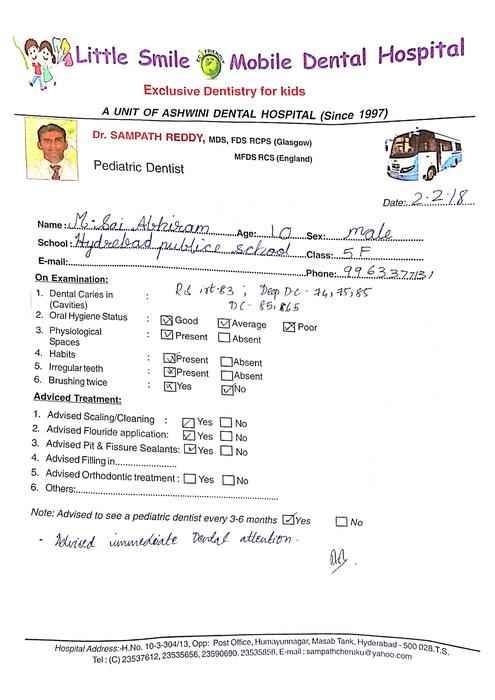 Little Smile Mobile Dental Hospital
Exclusive Dentistry for kids
A UNIT OF ASHWINI DENTAL HOSPITAL (Since 1997)
Dr. SAMPATH REDDY, MDS, FDS RCPS (Glasgow)
MFDS RCS (England)
Pediatric Dentist
Date: 2-2-18
Name: M. Sai Abhiram Age: 10 Sex: male
School: Hydrebad publice school Class: 5 F
E-mail: Phone: 9963377131
On Examination:
1. Dental Caries in (Cavities) : 83 ; Deep DC - 74,75,85
DC - 85,
2. Oral Hygiene Status : Good Average Poor
3. Physiological Spaces : Present Absent
4. Habits : Present Absent
5. Irregular teeth : Present Absent
6. Brushing twice : Yes No
Adviced Treatment:
1. Advised Scaling/Cleaning : Yes No
2. Advised Flouride application: Yes No
3. Advised Pit & Fissure Sealants: Yes No
4. Advised Filling in
5. Advised Orthodontic treatment : Yes No
6. Others:
Note: Advised to see a pediatric dentist every 3-6 months Yes No
- Advised immediate Dental attention.
Hospital Address:-H.No. 10-3-304/13, Opp: Post Office, Humayunnagar, Masab Tank, Hyderabad - 500 028.T.S.
Tel : (C) 23537612, 23535656, 23590690. 23535858, E-mail : sampathcheruku@yahoo.com